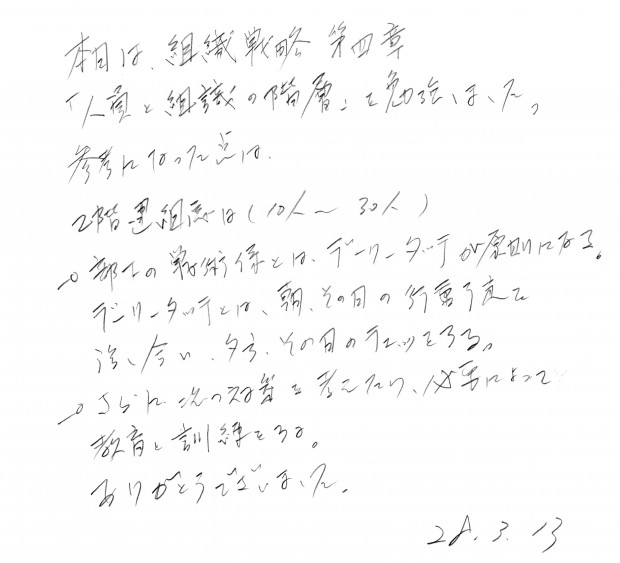 本日は、組織戦略 第四章
「人員と組識の階層」を勉強しました。
参考になった点は、
2階建組織は(10人〜30人)
部下の戦術係とは、デーリータッチが原則になる。
デーリータッチとは、朝、その日の行動予定を
話し合い、夕方、その日のチェックをする。
さらに次の対策を考えたり、必要によって
教育と訓練をする。
ありがとうございました。
28.3.13